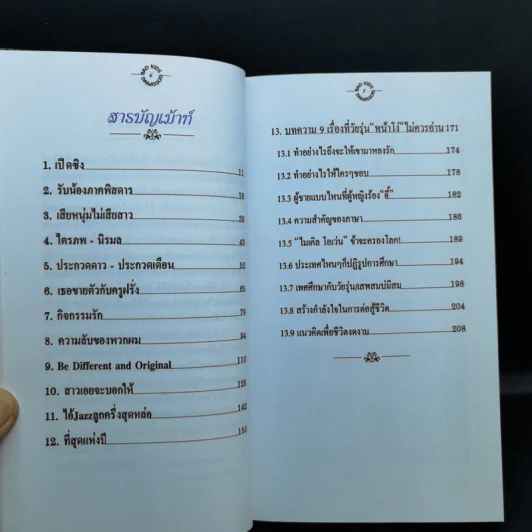 BAD KIDS
6
สารบัญเม้าท์
1. เปิดซิง 11
2. รับน้องภาคพิสดาร 18
3. เสียหนุ่มไม่เสียสาว 30
4. ไตรภพ - นิรมล 43
5. ประกวดดาว - ประกวดเดือน 52
6. เธอขายตัวกับครูฝรั่ง 65
7. กิจกรรมรัก 79
8. ความลับของพวกผม 94
9. Be Different and Original 110
10. สาวเอยจะบอกให้ 125
11. ไอ้Jazzลูกครึ่งสุดหล่อ 142
12. ที่สุดแห่งปี 155
BAD KIDS
7
13. บทความ 9 เรื่องที่วัยรุ่น"หน้าโง่"ไม่ควรอ่าน 171
13.1 ทำอย่างไรถึงจะให้เขามาหลงรัก 174
13.2 ทำอย่างไรให้ใครๆชอบ 178
13.3 ผู้ชายแบบไหนที่ผู้หญิงร้อง"อี้" 182
13.4 ความสำคัญของภาษา 186
13.5 "ไมเคิล โอเว่น" ข้าจะครองโลก! 189
13.6 ประเทศไหนๆก็ปฏิรูปการศึกษา 194
13.7 เพศศึกษากับวัยรุ่น 198
13.8 สร้างกำลังใจในการต่อสู้ชีวิต 204
13.9 แนวคิดเพื่อชีวิตงดงาม 208